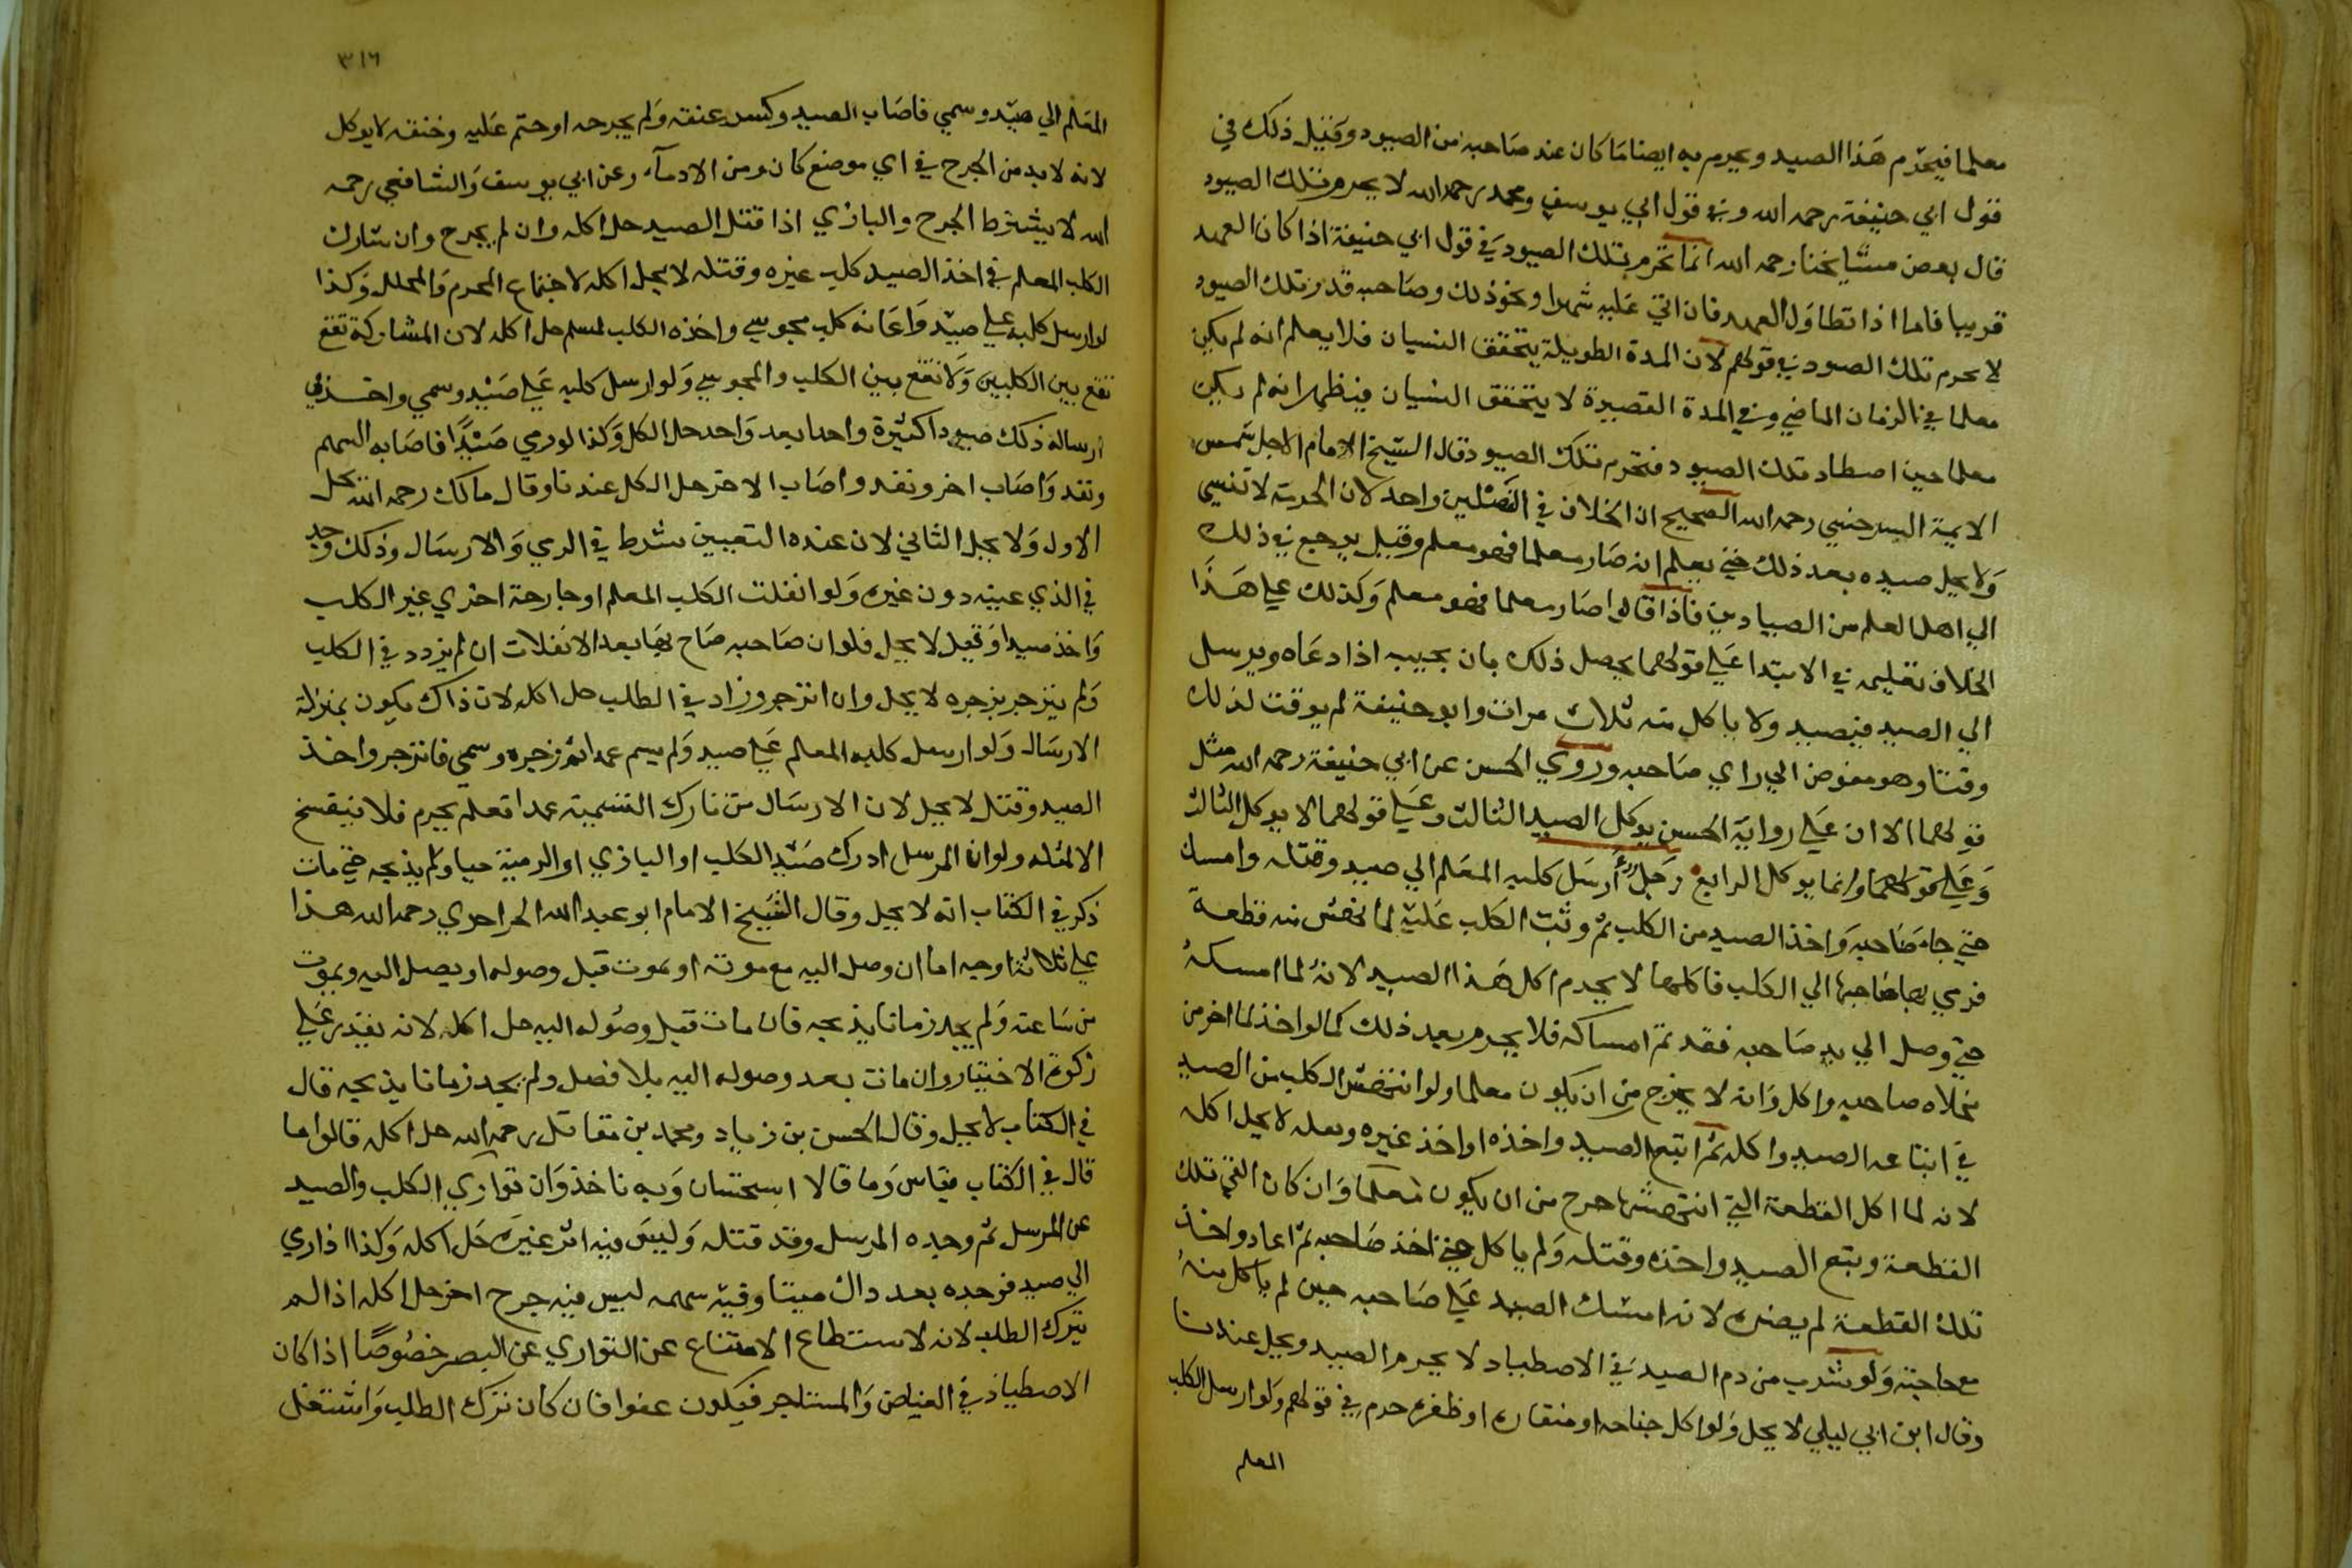 معلما فيحرم هذا الصيد ويحرم به ايضا ما كان عند صاحبه من الصيود وقيل ذلك في
قول ابي حنيفة رحمه الله وفي قول ابي يوسف ومحمد رحمه الله لا يحرم تلك الصيود
قال بعض مشايخنا رحمه الله انما تحرم تلك الصيود في قول ابي حنيفة اذا كان العهد
قريبا فاما اذا تطاول العهد فان اتي عليه شهرا ونحو ذلك وصاحبه قدر تلك الصيود
لا يحرم تلك الصيود في قولهم لان المدة الطويلة يتحقق النسيان فلا يعلم انه لم يكن
معلما في الزمان الماضي وفي المدة القصيرة لا يتحقق النسيان فيظهر انه لم يكن
معلما حين اصطاد تلك الصيود فتحرم تلك الصيود قال الشيخ الامام الاجل شمس
الايمة السرخسي رحمه الله الصحيح ان الخلاف في الفصلين واحد لان الحرفة لا تنسي
ولا يحل صيده بعد ذلك حتي يعلم انه صار معلما فهو معلم وقيل يرجع في ذلك
الي اهل العلم من الصيادين فاذا قالوا صار معلما فهو معلم وكذلك علي هذا
الخلاف تعليمه في الابتدا علي قولهما يحصل ذلك بان يجيبه اذا دعاه ويرسل
الي الصيد فيصيد ولا ياكل منه ثلاث مرات وابو حنيفة لم يوقت لذلك
وقتا وهو مفوض الي راي صاحبه وروي الحسن عن ابي حنيفة رحمه الله مثل
قولهما الا ان علي رواية الحسن يوكل الصيد الثالث وعلي قولهما لا يوكل الثالث
وعلي قولهما وانما يوكل الرابع رجل ارسل كلبه المعلم الي صيد وقتله وامسك
حتي جاء صاحبه واخذ الصيد من الكلب ثم وثب الكلب عليه فانهش منه قطعة
فرمي بها صاحبها الي الكلب فاكلها لا يحرم اكل هذا الصيد لانه لما امسكه
حتي وصل الي يد صاحبه فقد تم امساكه فلا يحرم بعد ذلك كما لو اخذ لما اخر من
مخلاه صاحبه واكل وانه لا يخرج من ان يكون معلما ولو انتهش الكلب من الصيد
في اتباعه الصيد واكله ثم اتبع الصيد واخذه او اخذ غيره وقتله لا يحل اكله
لانه لما اكل القطعة التي انتهشها خرج من ان يكون معلما وان كان القي تلك
القطعة وتبع الصيد واخذه وقتله ولم ياكل حتي اخذ صاحبه ثم اعاد واخذ
تلك القطعة لم يضره لانه امسك الصيد علي صاحبه حين لم ياكل منه
مع حاجته ولو شرب من دم الصيد في الاصطياد لا يحرم الصيد ويحل عندنا
وقال ابن ابي ليلي لا يحل ولو اكل جناحه او منقاره او ظفره حرم في قولهم ولو ارسل الكلب
المعلم
٣١٦
المعلم الي صيد وسمي فاصاب الصيد وكسر عنقه ولم يجرحه او جثم عليه وخنقه لا يوكل
لانه لا بد من الجرح في اي موضع كان ومن الادمآء وعن ابي يوسف والشافعي رحمه
الله لا يشترط الجرح والبازي اذا قتل الصيد حل اكله وان لم يجرح وان شارك
الكلب المعلم في اخذ الصيد كلب غيره وقتله لا يحل اكله لاجتماع المحرم والمحلل وكذا
لو ارسل كلبه علي صيد واعانه كلب مجوسي واخذه الكلب لمسلم حل اكله لان المشاركة تقع
تقع بين الكلبين ولا تقع بين الكلب والمجوسي ولو ارسل كلبه علي صيد وسمي واخذ في
ارساله ذلك صيودا كثيرة واحدا بعد واحد حل الكل وكذا لو رمي صيدا فاصابه السهم
ونفد واصاب اخر ونفد واصاب الاخر حل الكل عندنا وقال مالك رحمه الله يحل
الاول ولا يحل الثاني لان عنده التعيين شرط في الرمي والارسال وذلك وجد
في الذي عينه دون غيره ولو انفلت الكلب المعلم او جارحة اخري غير الكلب
واخذ صيدا وقتل لا يحل فلو ان صاحبه صاح بها بعد الانفلات ان لم يزدد في الكلب
ولم ينزجر بزجره لا يحل وان انزجر وزاد في الطلب حل اكله لان ذاك يكون بمنزلة
الارسال ولو ارسل كلبه المعلم علي صيد ولم يسم عمدا ثم زجره وسمي فانزجر واخذ
الصيد وقتل لا يحل لان الارسال من تارك التسمية عمدا فعل محرم فلا ينفسخ
الا بمثله ولو ان المرسل ادرك صيد الكلب او البازي او الرمية حيا ولم يذبحه حتي مات
ذكر في الكتاب انه لا يحل وقال الشيخ الامام ابو عبد الله الحراحري رحمه الله هذا
علي ثلاثة اوجه اما ان وصل اليه مع موته او يموت قبل وصوله او يصل اليه ويموت
من ساعته ولم يجد زمانا يذبحه فان مات قبل وصوله اليه حل اكله لانه يقدر علي
زكوة الاختيار وان مات بعد وصوله اليه بلا فصل ولم يجد زمانا يذبحه قال
في الكتاب لا يحل وقال الحسن بن زياد ومحمد بن مقاتل رحمه الله حل اكله قالوا ما
قال في الكتاب قياس وما قالا استحسان وبه ناخذ وان تواري الكلب والصيد
عن المرسل ثم وجده المرسل وقد قتله وليس فيه اثر غيره حل اكله وكذا اذا رمي
الي صيد فوجده بعد ذاك ميتا وفيه سهمه ليس فيه جرح اخر حل اكله اذا لم
يترك الطلب لانه لا يستطاع الامتناع عن التواري عن البصر خصوصا اذا كان
الاصطياد في الغياض والمستاجر فيكون عفوا فان كان ترك الطلب واشتغل